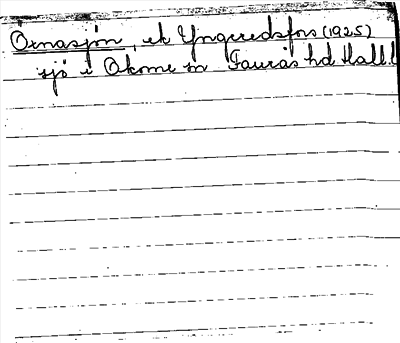 Örnasjön, ek Yngeredsfors (1925)
sjö i Okome sn Faurås hd Hall. l